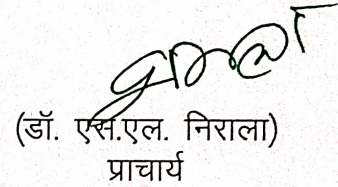 (डॉ. एस.एल. निराला)
प्राचार्य